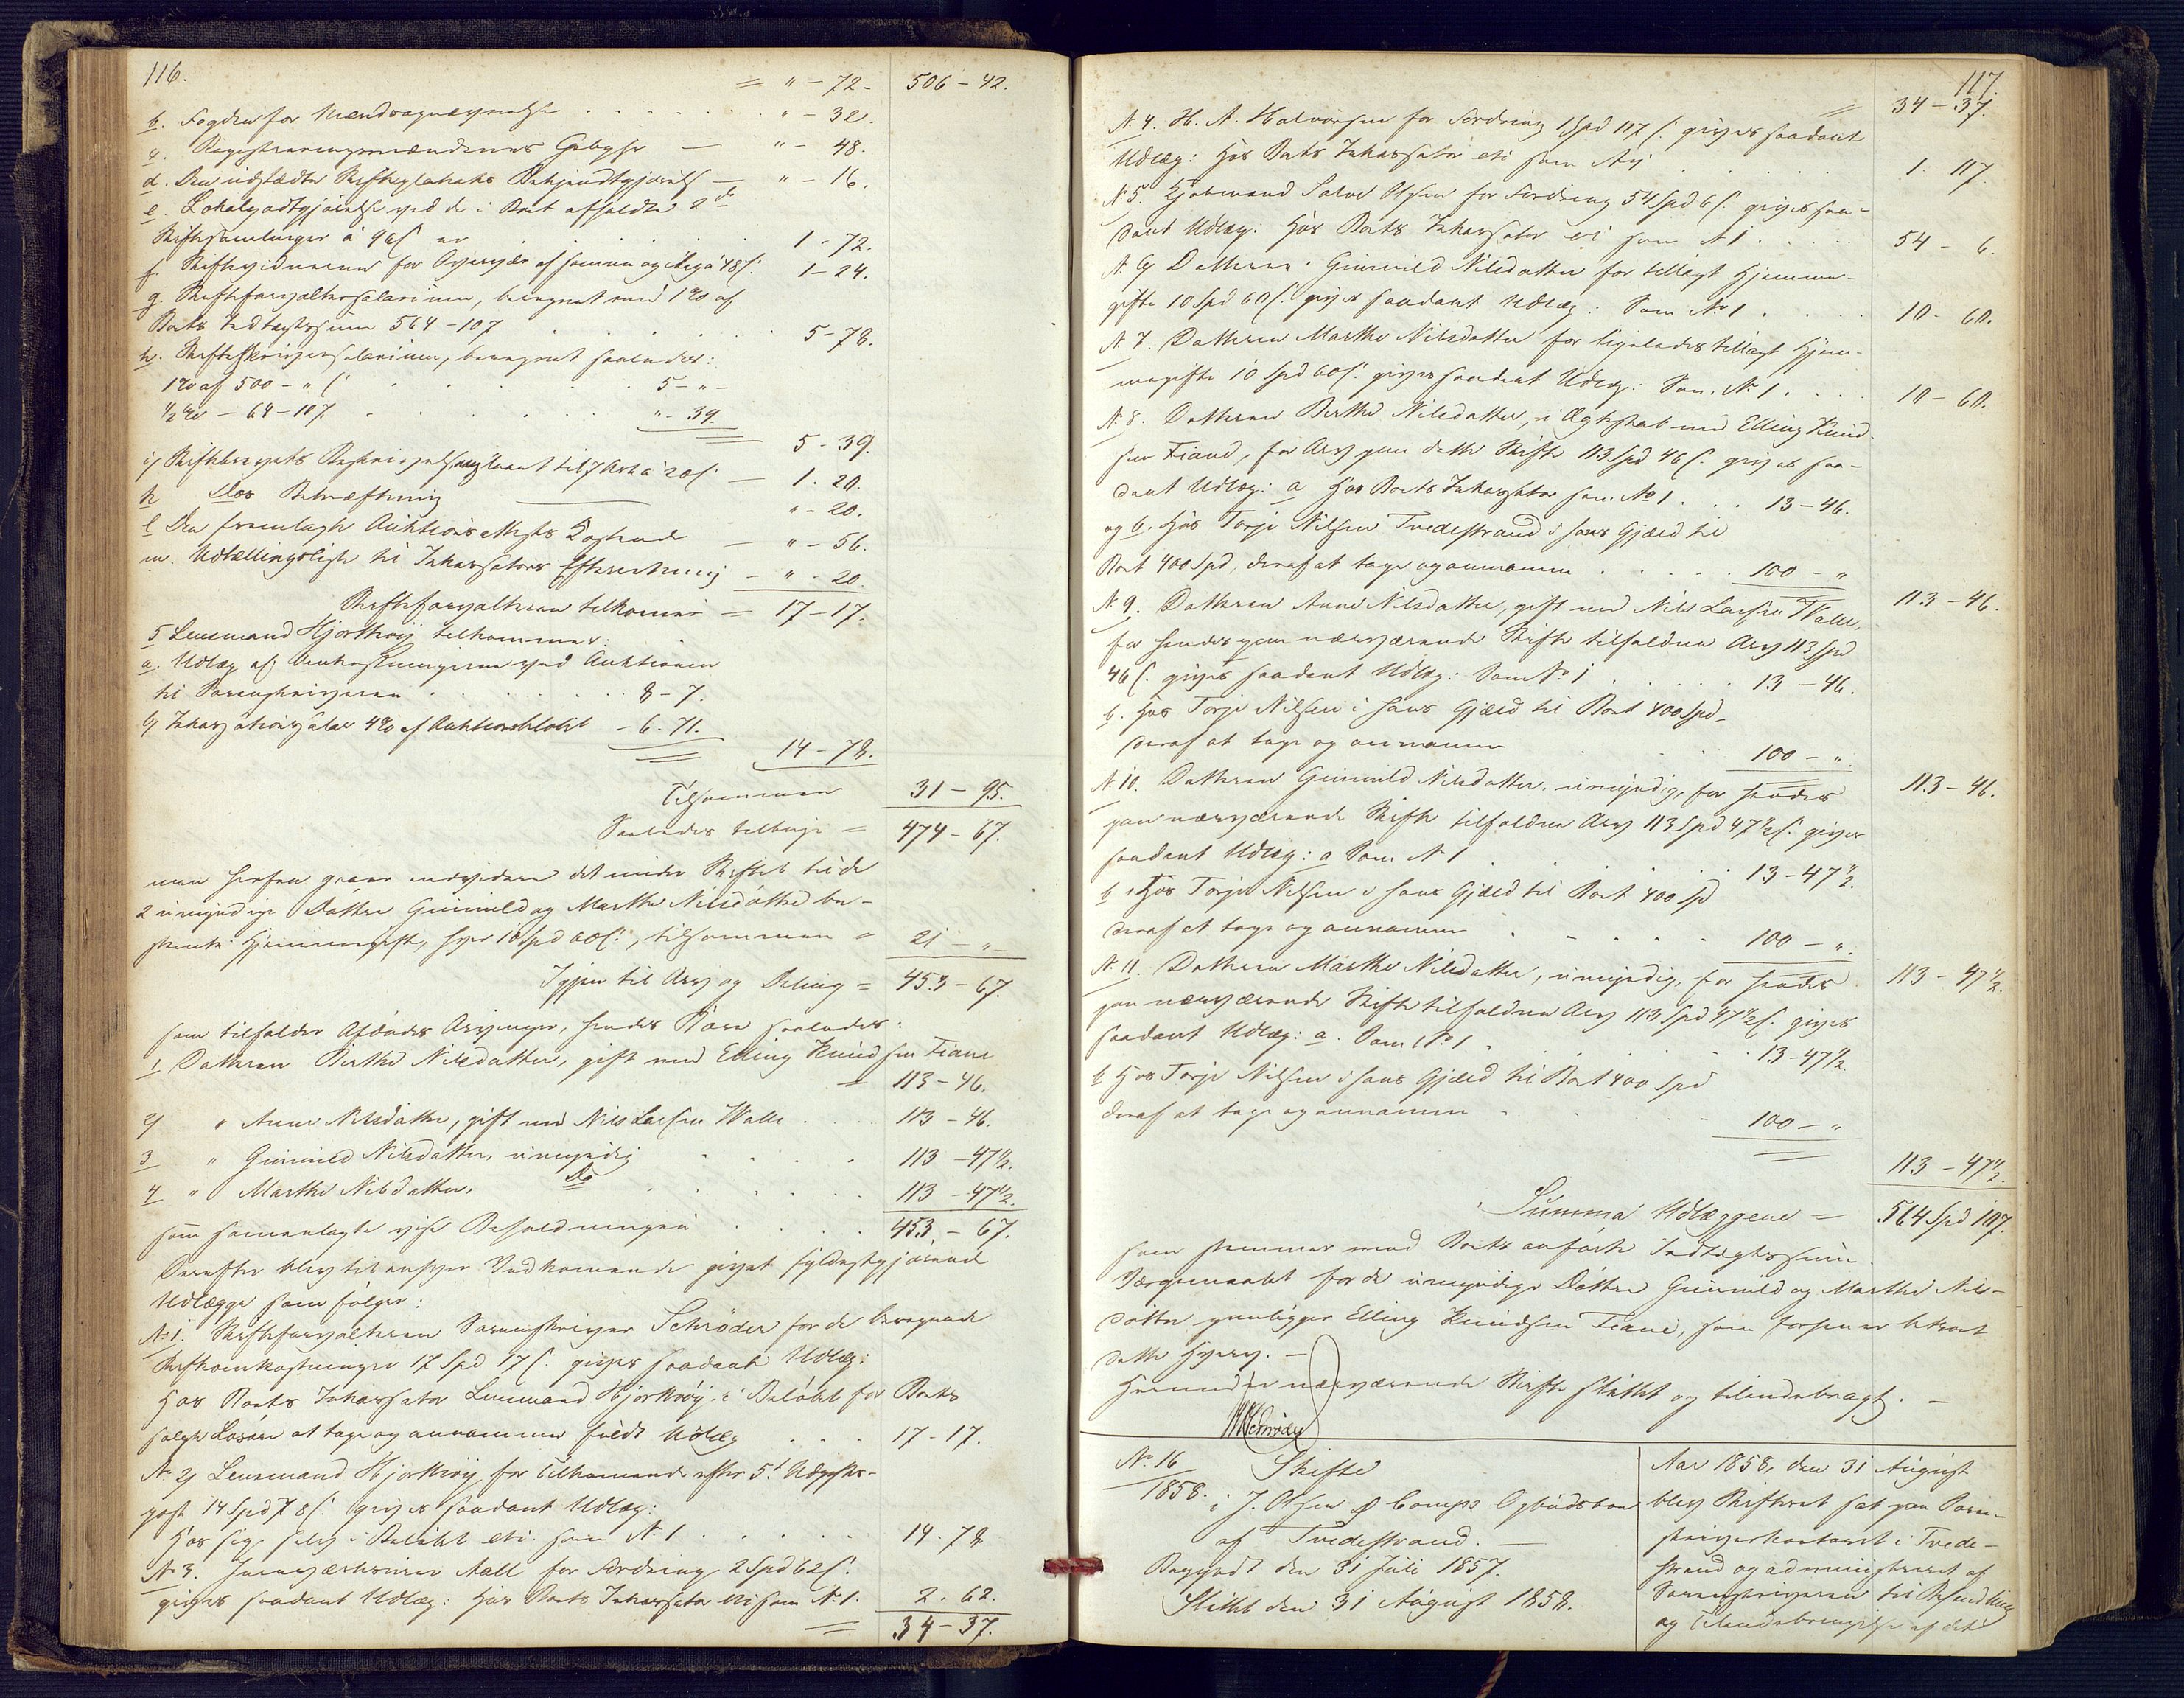 116.
= " - 72 - 506 - 42.
b. Fogden for Mændsopnævnelse . . . . " - 32.
c. Registreringsmændenes Gebyhr — " - 48.
d. Den udstædte Skifteplakats Bekjendtgjørelse — " - 16.
e. Lokalgodtgjørelse ved de i Boet afholdte 2de
Skiftesamlinger à 96 s er . . . . 1 - 72.
f. Skiftevidnerne for Overvær af samme og à 48 s. 1 - 24.
g. Skifteforvaltersalarium, beregnet med 1 % af
Boets Indtægtssum 564 - 107 . . . . 5 - 78.
h. Skifteskriversalarium, beregnet saaledes:
1 % af 500 - " s . . . . 5 - " -
1/2 % - 64 - 107. . . . . " - 39.
5 - 39.
i) Skiftebrevets Beskrivelse, anslaaet til 7 Ark à 20 s — 1 - 20.
k Dets Bekræftning — " - 20.
l Den fremlagte Auktions — " - 56.
m. Udtællingsliste til Inkassators Efterretning — " - 20
Skifteforvalteren tilkommer = 17 - 17.
5 Lensmand Hjorthøy tilkommer:
a. Udlæg af Omkostningerne ved Auktionen
til Sorenskriveren . . . . 8 - 7.
b) Inkassationssalær 4 % af Auktionsbeløbet - 6 - 71.
14 - 78.
Tilsammen 31 - 95.
Saaledes tilbage = 474 - 67.
men herfra gaaer endvidere det under Skiftet til de
2 umyndige Døttre Gunnild og Marthe Nilsdøttre be-
stemte Hjemmegifte, hver 10 Spd 60 s., tilsammen = 21 - " -
Igjen til Arv og Deling = 453 - 67.
som tilfalder Afdødes Arvinger, hendes Børn saaledes:
1 Datteren Birthe Nilsdatter, gift med Elling Knudsen Fiane
= 113 - 46.
2) " Anne Nilsdatter, gift med Nils Larsen Walle . . . 113 - 46.
3 " Gunnild Nilsdatter, umyndig . . . . 113 - 47 1/2.
4 " Marthe Nilsdatter, Do . . . . 113 - 47 1/2.
som sammenlagte vise Beholdningen . . . . 453 - 67.
Derefter blev til enhver Vedkommende givet fyldestgjørende
Udlægge som følger:
No 1. Skifteforvalteren Sorenskriver Schrøder for de beregnede
Skifteomkostninger 17 Spd 17 s. gives saadant Udlæg:
Hos Boets Inkassator Lensmand Hjorthøy i Beløbet for Boets
solgte Løsøre at tage og annamme fuldt Udlæg . . . 17 - 17.
No 2) Lensmand Hjorthøy for Tilkommende efter 5te Udgifts-
post 14 Spd 78 s. gives saadant Udlæg:
Hos sig selv i Beløbet etc. som No 1 . . . . 14 - 78
No 3. Jernværkseier Aall for Fordring 2 Spd 62 s.
gives saadant Udlæg: Hos Boets Inkassator etc som No 1. 2 - 62.
= 34 - 37.
117.
= 34 - 37.
No 4. H. A. Halvorsen for Fordring 1 Spd 117 s. gives saadant
Udlæg: Hos Boets Inkassator etc som No 1 . . . . 1 - 117
No 5. Gjørtmand Salve Olsen for Fordring 54 Spd 6 s. gives saa-
dant Udlæg: Hos Boets Inkassator etc som No 1 . . . . 54 - 6.
No 6) Datteren Gunnild Nilsdatter for tillagt Hjemme-
gifte 10 Spd 60 s. gives saadant Udlæg: Som No 1 . . . . 10 - 60.
No 7. Datteren Marthe Nilsdatter for ligeledes tillagt Hjem-
megifte 10 Spd 60 s. gives saadant Udlæg: Som No 1 . . . . 10 - 60.
No 8. Datteren Birthe Nilsdatter, i Ægteskab med Elling Knud-
sen Fiane, for Arv paa dette Skifte 113 Spd 46 s. gives saa-
dant Udlæg: a Hos Boets Inkassator som No 1 . . . 13 - 46.
og b. Hos Torje Nilsen Tvedestrand i hans Gjæld til
Boet 400 Spd, deraf at tage og annamme . . . . 100 - "
113 - 46.
No 9. Datteren Anne Nilsdatter, gift med Nils Larsen Walle,
for hendes paa nærværende Skifte tilfaldne Arv 113 Spd
46 s. gives saadant Udlæg: Som No 1 . . . . 13 - 46.
b. Hos Torje Nilsen i hans Gjæld til Boet 400 Spd -
deraf at tage og annamme . . . . 100 - ".
113 - 46.
No 10. Datteren Gunnild Nilsdatter, umyndig, for hendes
paa nærværende Skifte tilfaldne Arv 113 Spd 47 1/2 s. gives
saadant Udlæg: a Som No 1 . . . . 13 - 47 1/2.
b Hos Torje Nilsen i hans Gjæld til Boet 400 Spd
deraf at tage og annamme . . . . 100 - ".
113 - 47 1/2.
No 11. Datteren Marthe Nilsdatter, umyndig, for hendes
paa nærværende Skifte tilfaldne Arv 113 Spd 47 1/2 s. gives
saadant Udlæg: a. Som No 1 . . . . 13 - 47 1/2
b Hos Torje Nilsen i hans Gjæld til Boet 400 Spd
deraf at tage og annamme . . . . 100 - "
113 - 47 1/2.
Summa Udlæggene = 564 Spd 107.
som stemmer med Boets anførte Indtægtssum.
Værgemaalet for de umyndige Døttre Gunnild og Marthe Nils-
døttre paaligger Elling Knudsen Fiane, som forhen er betroet
dette Hverv. —
Hermed er nærværende Skifte sluttet og tilendebragt. —
Schrøder
No 16
1858.
Skifte
i J. Olsen & Comps Opbudsboe
af Tvedestrand. —
Begyndt den 31 Juli 1857.
Sluttet den 31 August 1858.
Aar 1858, den 31 August
blev Skifteret sat paa Soren-
skriverkontoret i Tvede-
strand og administreret af
Sorenskriveren til Behandling
og Tilendebringelse af det